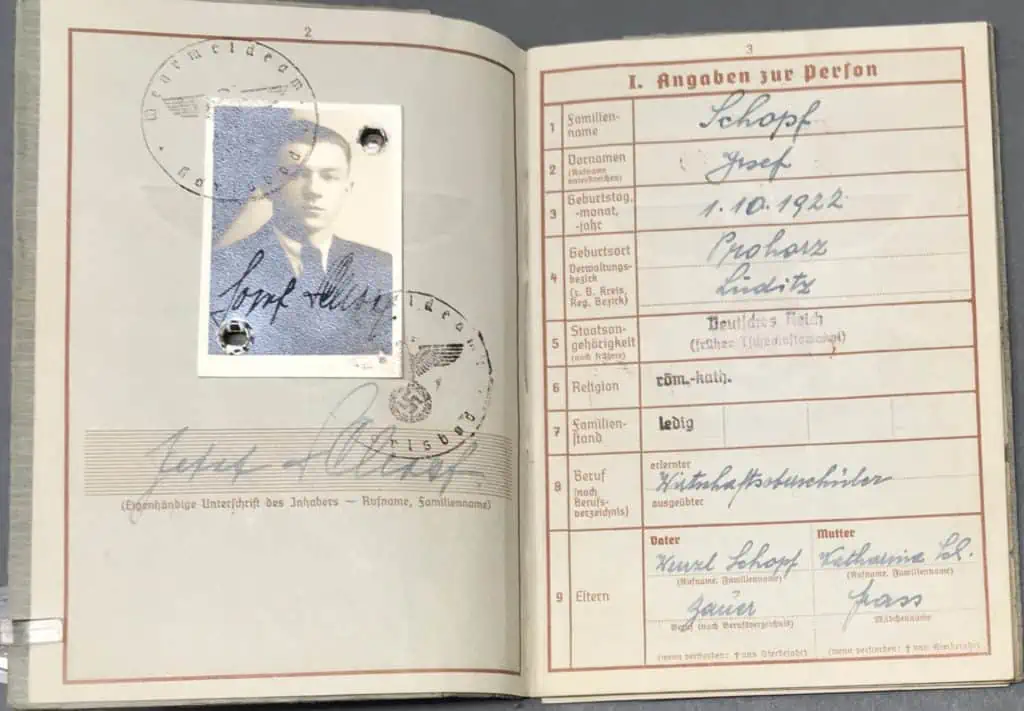 2
Wehrmeldeamt
Josef Schopf
(Eigenhändige Unterschrift des Inhabers — Rufname, Familienname)
3
I. Angaben zur Person
1 Familien-
name
Schopf
2 Vornamen
(Rufname
unterstreichen)
Josef
3 Geburtstag,
-monat,
-jahr
1.10.1922
4 Geburtsort
Verwaltungs-
bezirk
(z. B. Kreis,
Reg. Bezirk)
Proharz
Luditz
5 Staatsan-
gehörigkeit
(auch frühere)
Deutsches Reich
(früher Tschechoslowakei)
6 Religion
röm.-kath.
7 Familien-
stand
ledig
8 Beruf
(nach
Berufs-
verzeichnis)
erlernter
Wirtschaftsoberschüler
ausgeübter
9 Eltern
Vater
Wenzl Schopf
(Rufname, Familienname)
Beruf (nach Berufsverzeichnis)
(wenn verstorben: † und Sterbejahr)
Mutter
Katharina Sch.
(Rufname, Familienname)
Mädchenname
(wenn verstorben: † und Sterbejahr)